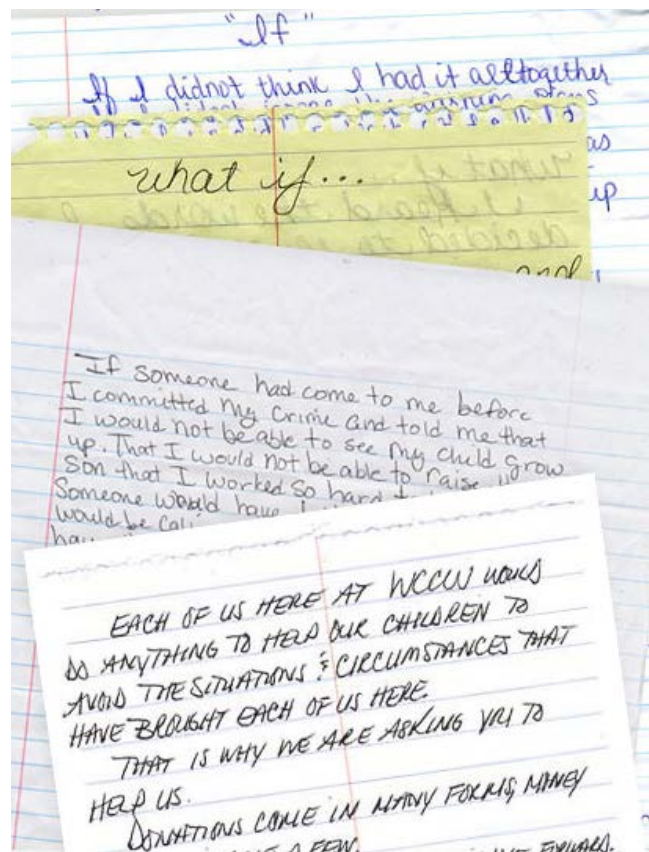 "If"
If I didnot think I had it alltogether
as
what if...
up
and
If someone had come to me before
I committed my crime and told me that
I would not be able to see my child grow
up. That I would not be able to raise
son that I worked so hard
Someone would have
would be
EACH OF US HERE AT WCCW WOULD
DO ANYTHING TO HELP OUR CHILDREN TO
AVOID THE SITUATIONS & CIRCUMSTANCES THAT
HAVE BROUGHT EACH OF US HERE.
THAT IS WHY WE ARE ASKING YOU TO
HELP US.
DONATIONS COME IN MANY FORMS, MONEY
A FEW.
FORWARD.